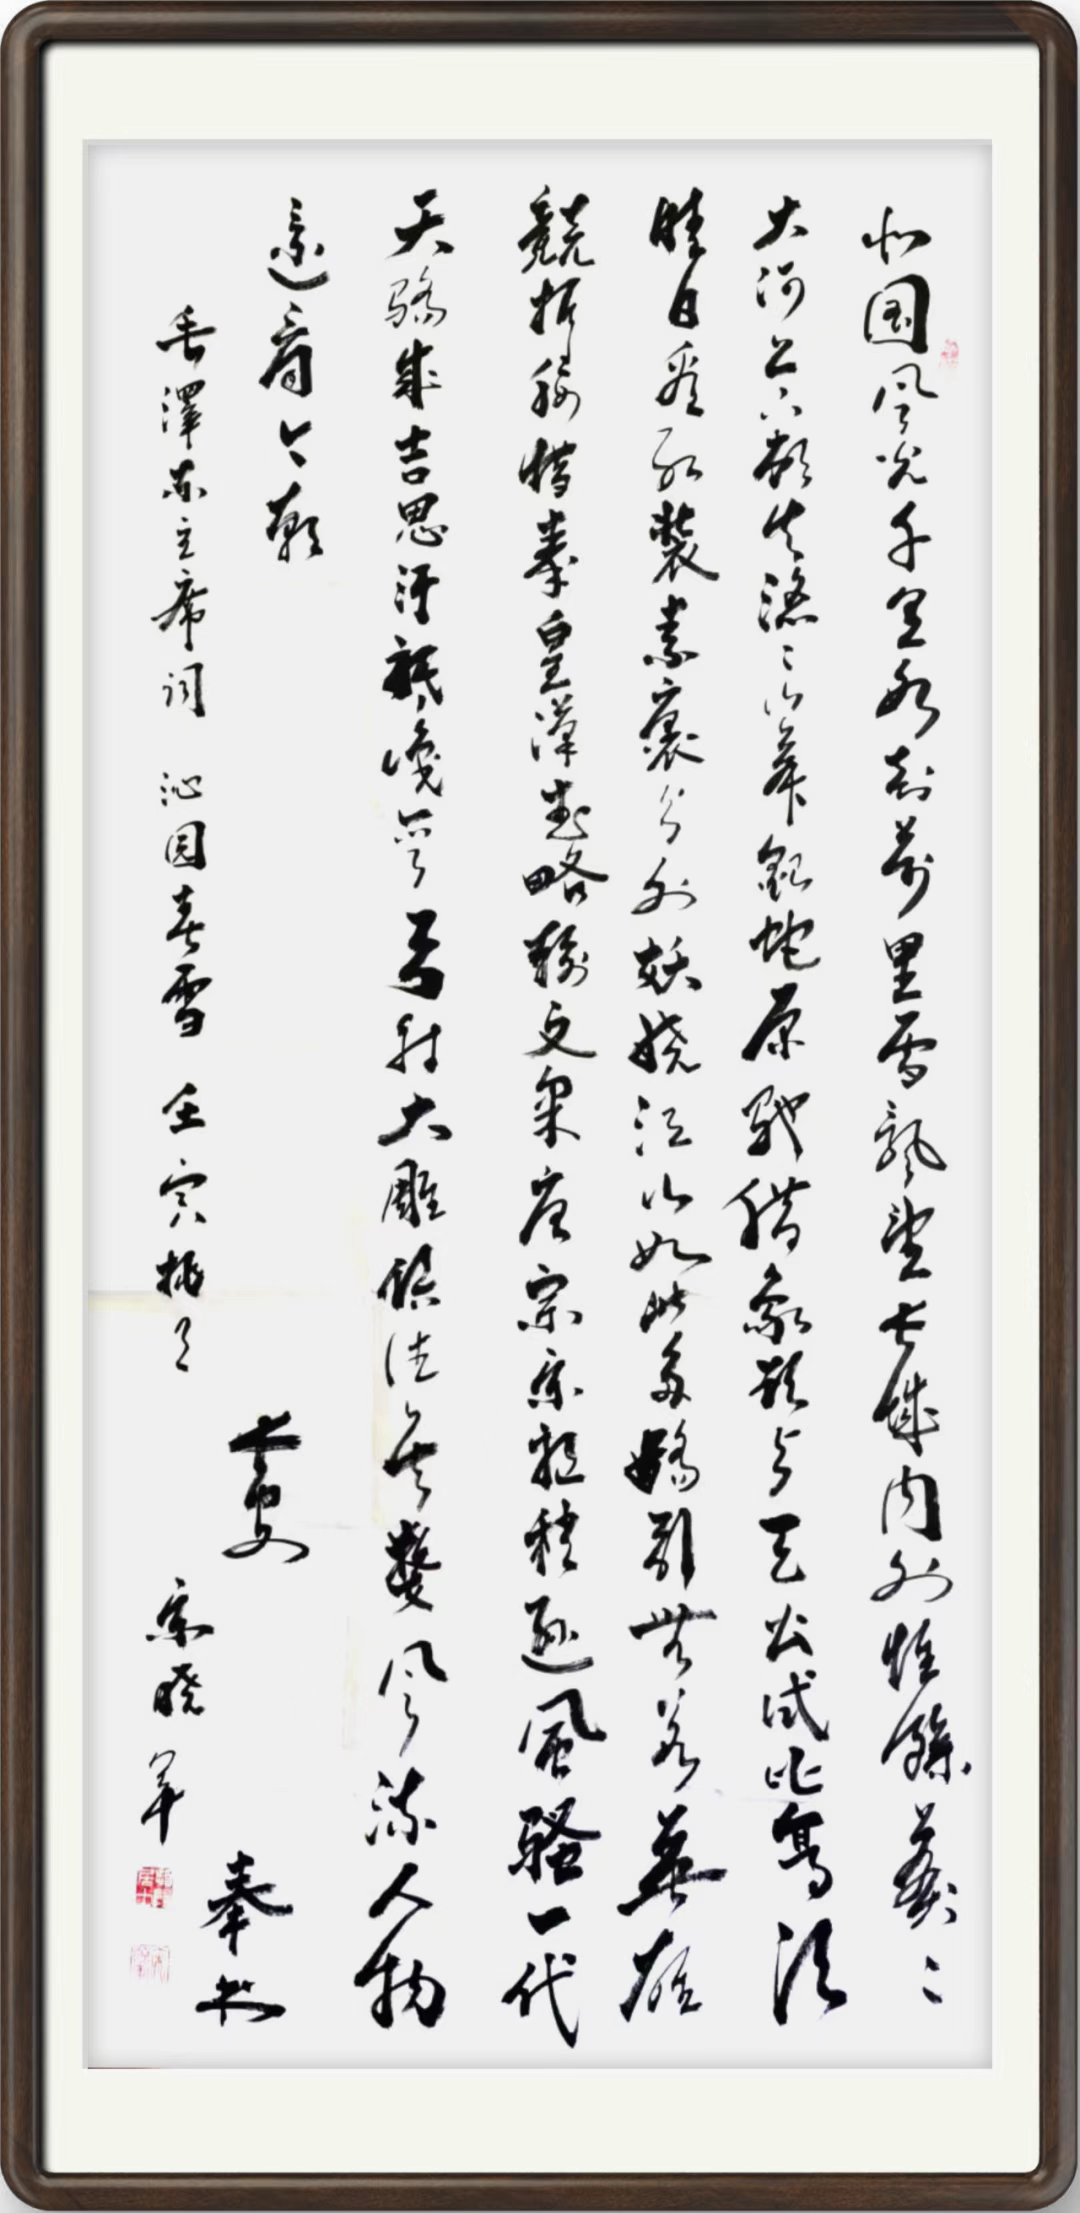 北国风光千里冰封万里雪飘望长城内外惟餘莽〻
大河上下顿失滔〻山舞銀蛇原驰蜡象欲与天公试比高须
晴日看红装素裹分外妖娆江山如此多娇引無数英雄
競折腰惜秦皇漢武略输文采唐宗宋祖稍逊風騷一代
天骄成吉思汗祇識彎弓射大雕俱往矣數风流人物
还看今朝
毛澤东主席词 沁园春雪 壬寅桃月
宋晓军
奉书